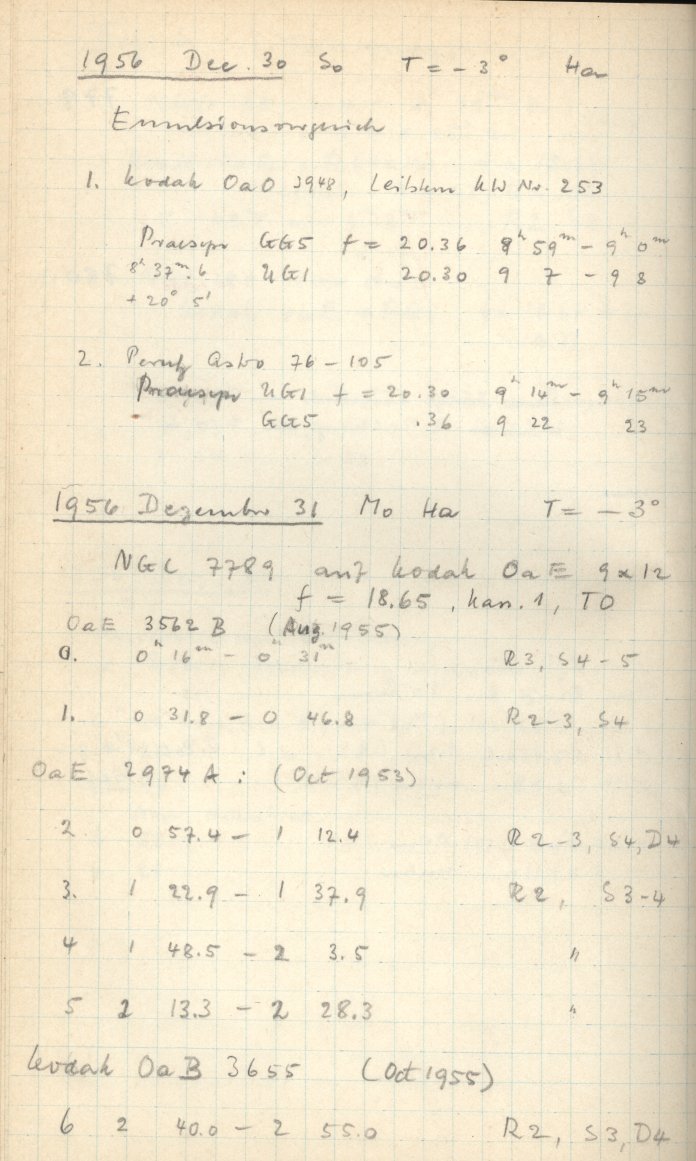 1956 Dec. 30 So T = -3° Ha
Emulsionsvergleich
1. Kodak OaO 3948, Leitstern KW Nr. 253
Praesepe GG5 f = 20.36 8ʰ 59ᵐ - 9ʰ 0ᵐ
8ʰ 37ᵐ.6 UG1 20.30 9 7 - 9 8
+ 20° 5'
2. Perutz Astro 76-105
Praesepe UG1 f = 20.30 9ʰ 14ᵐ - 9ʰ 15ᵐ
GG5 .36 9 22 23
1956 Dezember 31 Mo Ha T = -3°
NGC 7789 auf Kodak OaE 9x12
f = 18.65, Kass. 1, TO
OaE 3562 B (Aug. 1955)
0. 0ʰ 16ᵐ - 0ʰ 31ᵐ R3, S4-5
1. 0 31.8 - 0 46.8 R2-3, S4
OaE 2974 A: (Oct 1953)
2 0 57.4 - 1 12.4 R2-3, S4, D4
3. 1 22.9 - 1 37.9 R2, S3-4
4 1 48.5 - 2 3.5 "
5 2 13.3 - 2 28.3 "
Kodak OaB 3655 (Oct 1955)
6 2 40.0 - 2 55.0 R2, S3, D4